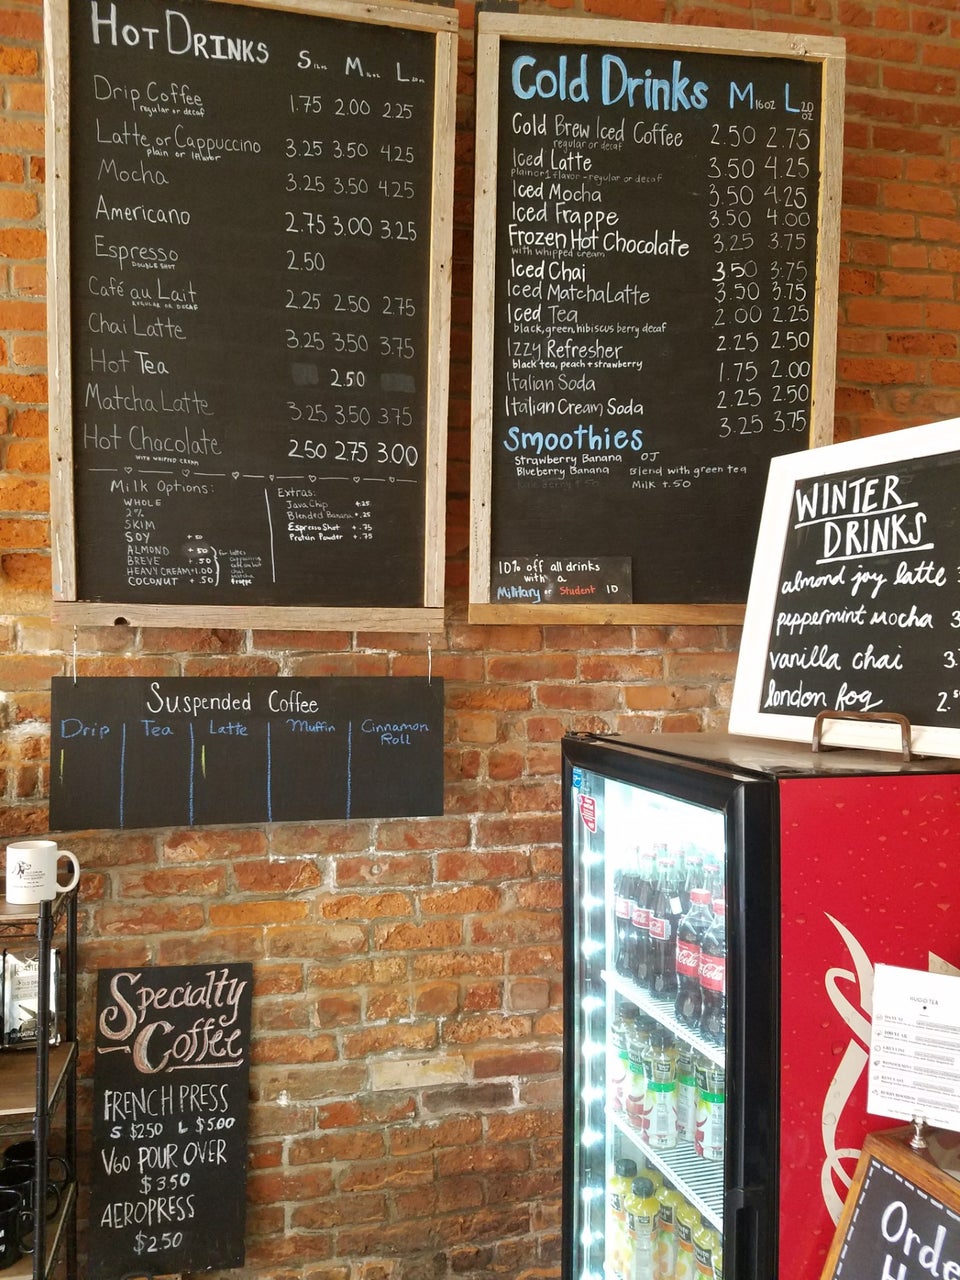 Hot Drinks S 12oz M 16oz L 20oz
Drip Coffee 1.75 2.00 2.25
regular or decaf
Latte or Cappuccino 3.25 3.50 4.25
plain or 1 flavor
Mocha 3.25 3.50 4.25
Americano 2.75 3.00 3.25
Espresso 2.50
DOUBLE SHOT
Café au Lait 2.25 2.50 2.75
REGULAR OR DECAF
Chai Latte 3.25 3.50 3.75
Hot Tea 2.50
Matcha Latte 3.25 3.50 3.75
Hot Chocolate 2.50 2.75 3.00
WITH WHIPPED CREAM
Milk Options:
WHOLE
2%
SKIM
SOY +.50
ALMOND +.50
BREVE +.50
HEAVY CREAM +1.00
COCONUT +.50
for lattes
cappuccino
café au lait
chai
matcha
frappe
Extras:
Java Chip +.25
Blended Banana +.25
Espresso Shot +.75
Protein Powder +.75
Cold Drinks M 16oz L 20 oz
Cold Brew Iced Coffee 2.50 2.75
regular or decaf
Iced Latte 3.50 4.25
plain or 1 flavor - regular or decaf
Iced Mocha 3.50 4.25
Iced Frappe 3.50 4.00
Frozen Hot Chocolate 3.25 3.75
with whipped cream
Iced Chai 3.50 3.75
Iced Matcha Latte 3.50 3.75
Iced Tea 2.00 2.25
black, green, hibiscus berry decaf
Izzy Refresher 2.25 2.50
black tea, peach + strawberry
Italian Soda 1.75 2.00
Italian Cream Soda 2.25 2.50
Smoothies 3.25 3.75
Strawberry Banana OJ
Blueberry Banana Blend with green tea
Milk +.50
10% off all drinks
with a
Military or Student ID
WINTER
DRINKS
almond joy latte 3
peppermint mocha 3
vanilla chai 3.
london fog 2.
Suspended Coffee
Drip Tea Latte Muffin Cinnamon
Roll
Specialty
Coffee
FRENCH PRESS
S $2.50 L $5.00
V60 POUR OVER
$3.50
AEROPRESS
$2.50
Coca-Cola
Coca-Cola
HUGO TEA
Orde